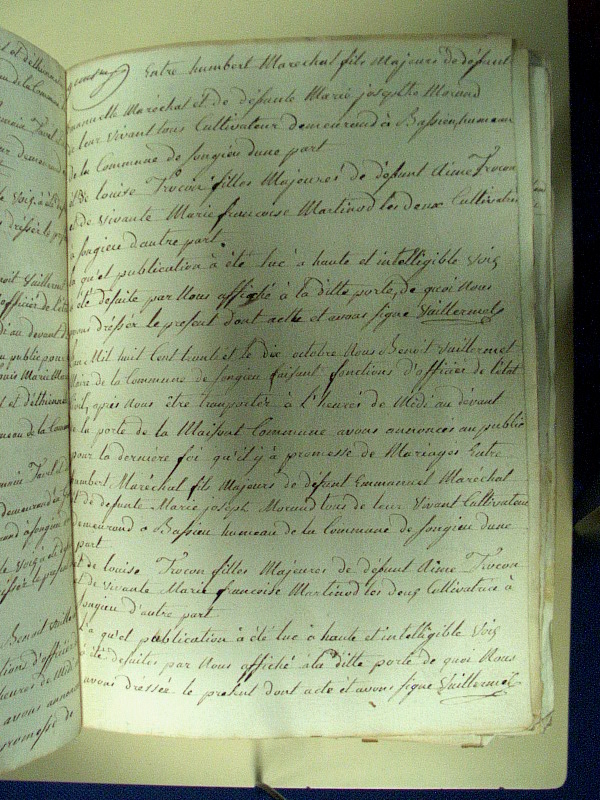 Entre humbert Marechal fils Majeurs de défunt
Emanuelle Maréchal et de défunte Marie josephte Morand
de leur Vivant tous Cultivateur demeurend à Bassieu humeau
de la Commune de Songieu dune part
et De louise Trocon filles Majeures de défunt Aime Trocon
et de vivante Marie francoise Martinod les deux Cultivatrice
à Songieu d'autre part.
La qu'el publication à été luë à haute et intelligible Voix
à été desuite par Nous affiché à la ditte porte, de quoi Nous
avons dréssér le present dont acte et avons signé Vuillermet
L'an Mil huit Cent trente et le dix octobre Nous Benoit Vuillermet
Maire de la Commune de Songieu faisant fonctions d'officier de l'état
Civil, après Nous être transportér à l'heurés de Midi au devant
de la porte de la Maison Commune avons annoncés au public
pour la derniere foi qu'il y à promesse de Mariages Entre
humbert Maréchal fils Majeurs de défunt Emmanuel Maréchal
et de defunte Marie joseph Morand tous de leur Vivant Cultivateur
demeurend à Bassieu humeau de la Commune de Songieu dune
part
et de louise Trocon filles Majeures de défunt Aime Trocon
et de vivante Marie francoise Martinod les deux Cultivatrice à
Songieu d'autre part
L'a qu'el publication à été luë à haute et intelligible Voix
à été desuites par Nous affiché à la ditte porte de quoi Nous
avons dréssée le present dont acte et avons signe Vuillermet